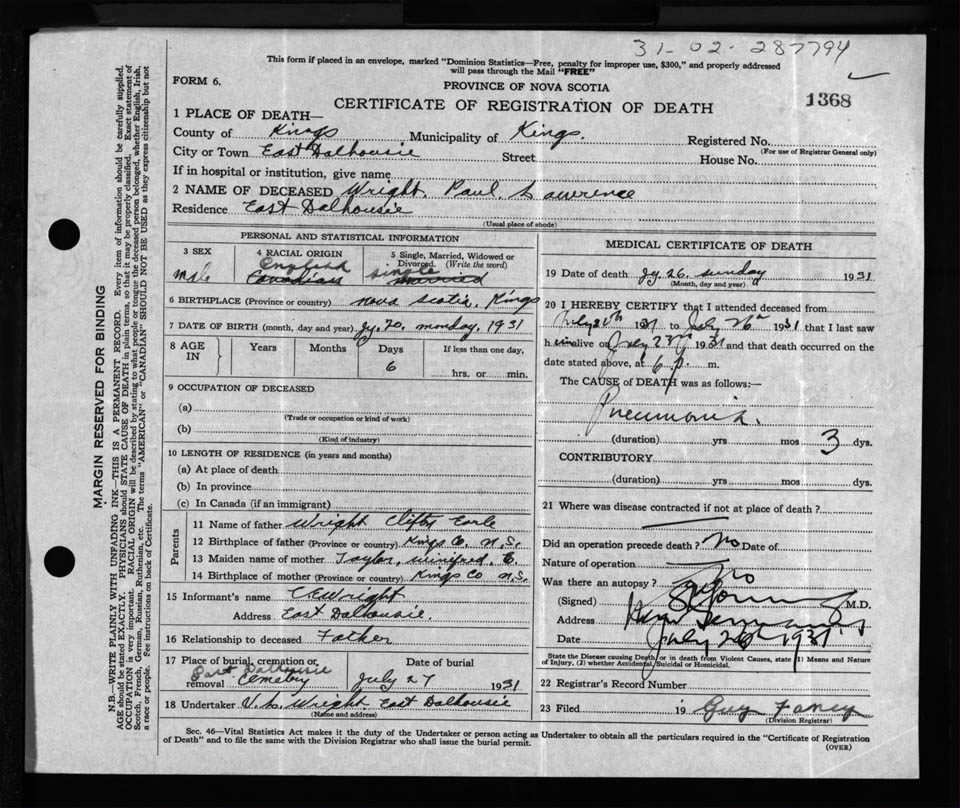 31-02-287794
This form if placed in an envelope, marked "Dominion Statistics—Free, penalty for improper use, $300," and properly addressed
will pass through the Mail "FREE"
FORM 6.
PROVINCE OF NOVA SCOTIA
CERTIFICATE OF REGISTRATION OF DEATH
1368
1 PLACE OF DEATH—
County of Kings Municipality of Kings. Registered No.
(For use of Registrar General only)
City or Town East Dalhousie Street House No.
If in hospital or institution, give name
2 NAME OF DECEASED Wright, Paul Lawrence
Residence East Dalhousie
(Usual place of abode)
PERSONAL AND STATISTICAL INFORMATION
3 SEX male
4 RACIAL ORIGIN English Canadian
5 Single, Married, Widowed or Divorced. (Write the word) single married
6 BIRTHPLACE (Province or country) Nova Scotia, Kings
7 DATE OF BIRTH (month, day and year) Jy. 20, monday, 1931
8 AGE IN Years Months Days 6 If less than one day, hrs. or min.
9 OCCUPATION OF DECEASED
(a)
(Trade or occupation or kind of work)
(b)
(Kind of industry)
10 LENGTH OF RESIDENCE (in years and months)
(a) At place of death
(b) In province
(c) In Canada (if an immigrant)
Parents
11 Name of father Wright Earle
12 Birthplace of father (Province or country) Kings Co. N.S.
13 Maiden name of mother Taylor, Winifred, E.
14 Birthplace of mother (Province or country) Kings Co N.S.
15 Informant's name C E Wright
Address East Dalhousie.
16 Relationship to deceased Father
17 Place of burial, cremation, or removal East Dalhousie Cemetery
Date of burial July 27 1931
18 Undertaker V. L. Wright East Dalhousie
(Name and address)
MEDICAL CERTIFICATE OF DEATH
19 Date of death Jy. 26. sunday 1931
(Month, day and year)
20 I HEREBY CERTIFY that I attended deceased from
July 20th 1931 to July 26th 1931 that I last saw
him alive on July 23rd 1931 and that death occurred on the
date stated above, at 6 p. m.
The CAUSE of DEATH was as follows:
Pneumonia.
(duration) yrs mos 3 dys.
CONTRIBUTORY
(duration) yrs mos dys.
21 Where was disease contracted if not at place of death?
Did an operation precede death? No Date of
Nature of operation
Was there an autopsy? No
(Signed) M.D.
Address
Date July 26th 1931
State the Disease causing Death, or in death from Violent Causes, state 1) Means and Nature
of Injury, (2) whether Accidental, Suicidal or Homicidal.
22 Registrar's Record Number
23 Filed 19 Guy
(Division Registrar)
Sec. 46—Vital Statistics Act makes it the duty of the Undertaker or person acting as Undertaker to obtain all the particulars required in the "Certificate of Registration
of Death" and to file the same with the Division Registrar who shall issue the burial permit.
(OVER)
MARGIN RESERVED FOR BINDING
N.B.—WRITE PLAINLY WITH UNFADING INK—THIS IS A PERMANENT RECORD. Every item of information should be carefully supplied.
AGE should be stated EXACTLY. PHYSICIANS should STATE CAUSE OF DEATH in plain terms, so that it may be properly classified. Exact statement of
OCCUPATION is very important. RACIAL ORIGIN will be described by stating to what people or tongue the deceased person belonged, whether English, Irish,
Scotch, French, German, Russian, Ruthenian, etc. The terms "AMERICAN" or "CANADIAN" SHOULD NOT BE USED as they express citizenship but not
a race or people. Fee instructions on back of Certificate.